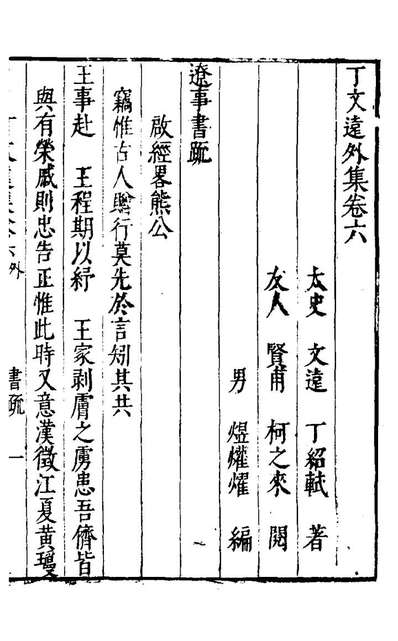 丁文遠外集卷六
太史　文遠　丁紹軾　著
友人　賢甫　柯之來　閱
男　煜爟燿　編
遼事書疏
啟經畧熊公
竊惟古人贈行莫先於言矧其共
王事赴　王程期以紓　王家剥膚之虜患吾儕皆
與有榮戚則忠告正惟此時又意漢徵江夏黃瓊
外
書疏　一